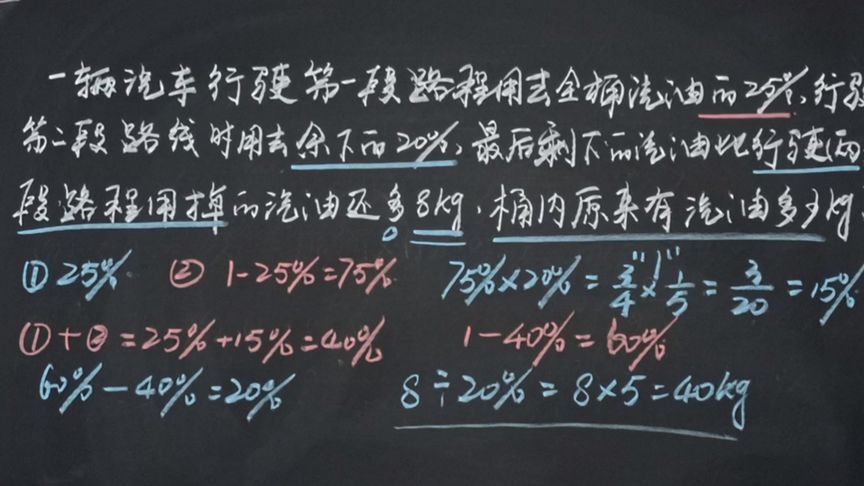 一辆汽车行驶第一段路程用去全桶汽油的25%,行驶
第二段路线时用去余下的20%,最后剩下的汽油比行驶两
段路程用掉的汽油还多8kg,桶内原来有汽油多少kg
① 25% ② 1-25%=75% 75%×20%=3/4×1/5=3/20=15%
①+②=25%+15%=40% 1-40%=60%
60%-40%=20% 8÷20%=8×5=40kg